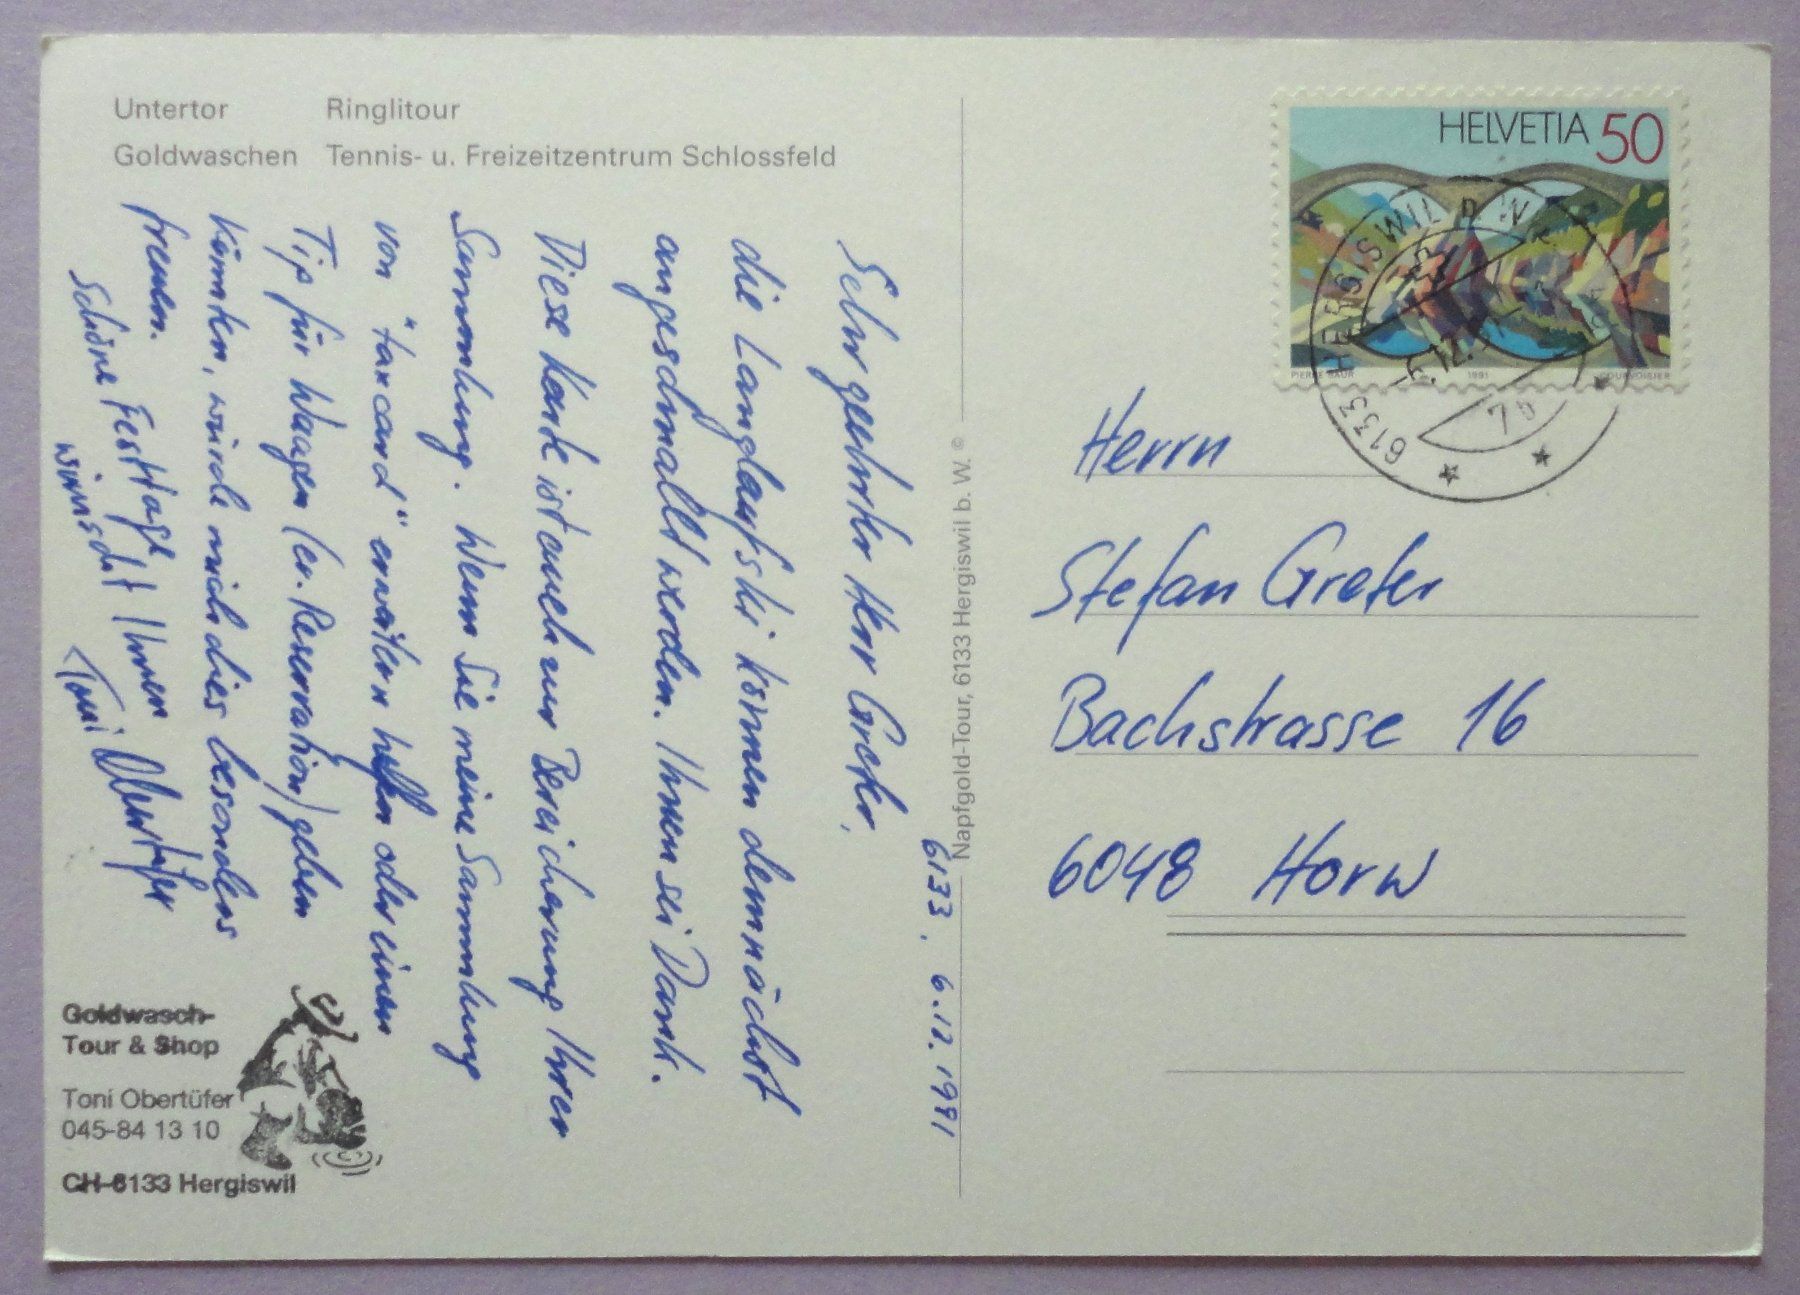 Untertor Ringlitour
Goldwaschen Tennis- u. Freizeitzentrum Schlossfeld
6133. 6.12.1991
Sehr geehrter Herr Greter,
die Langlaufski können demnächst
angeschnallt werden. Ihnen sei Dank.
Diese Karte ist auch zur Bereicherung Ihrer
Sammlung. Wenn Sie meine Sammlung
von "taxcard" erweitern helfen oder einen
Tip für Waagen (ev. Reservation) geben
könnten, würde mich dies besonders
freuen.
Schöne Festtage Ihnen
wünscht
Toni Obertüfer
Goldwasch-
Tour & Shop
Toni Obertüfer
045-84 13 10
CH-6133 Hergiswil
Napfgold-Tour, 6133 Hergiswil b. W. ©
HELVETIA 50
PIERRE BAUR 1991 COURVOISIER
6133 HERGISWIL
Herrn
Stefan Greter
Bachstrasse 16
6048 Horw